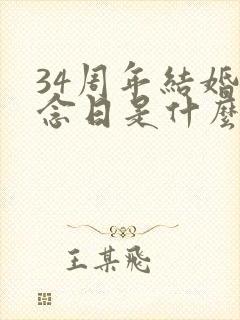 34周年結婚
念日是什麼
王某飛